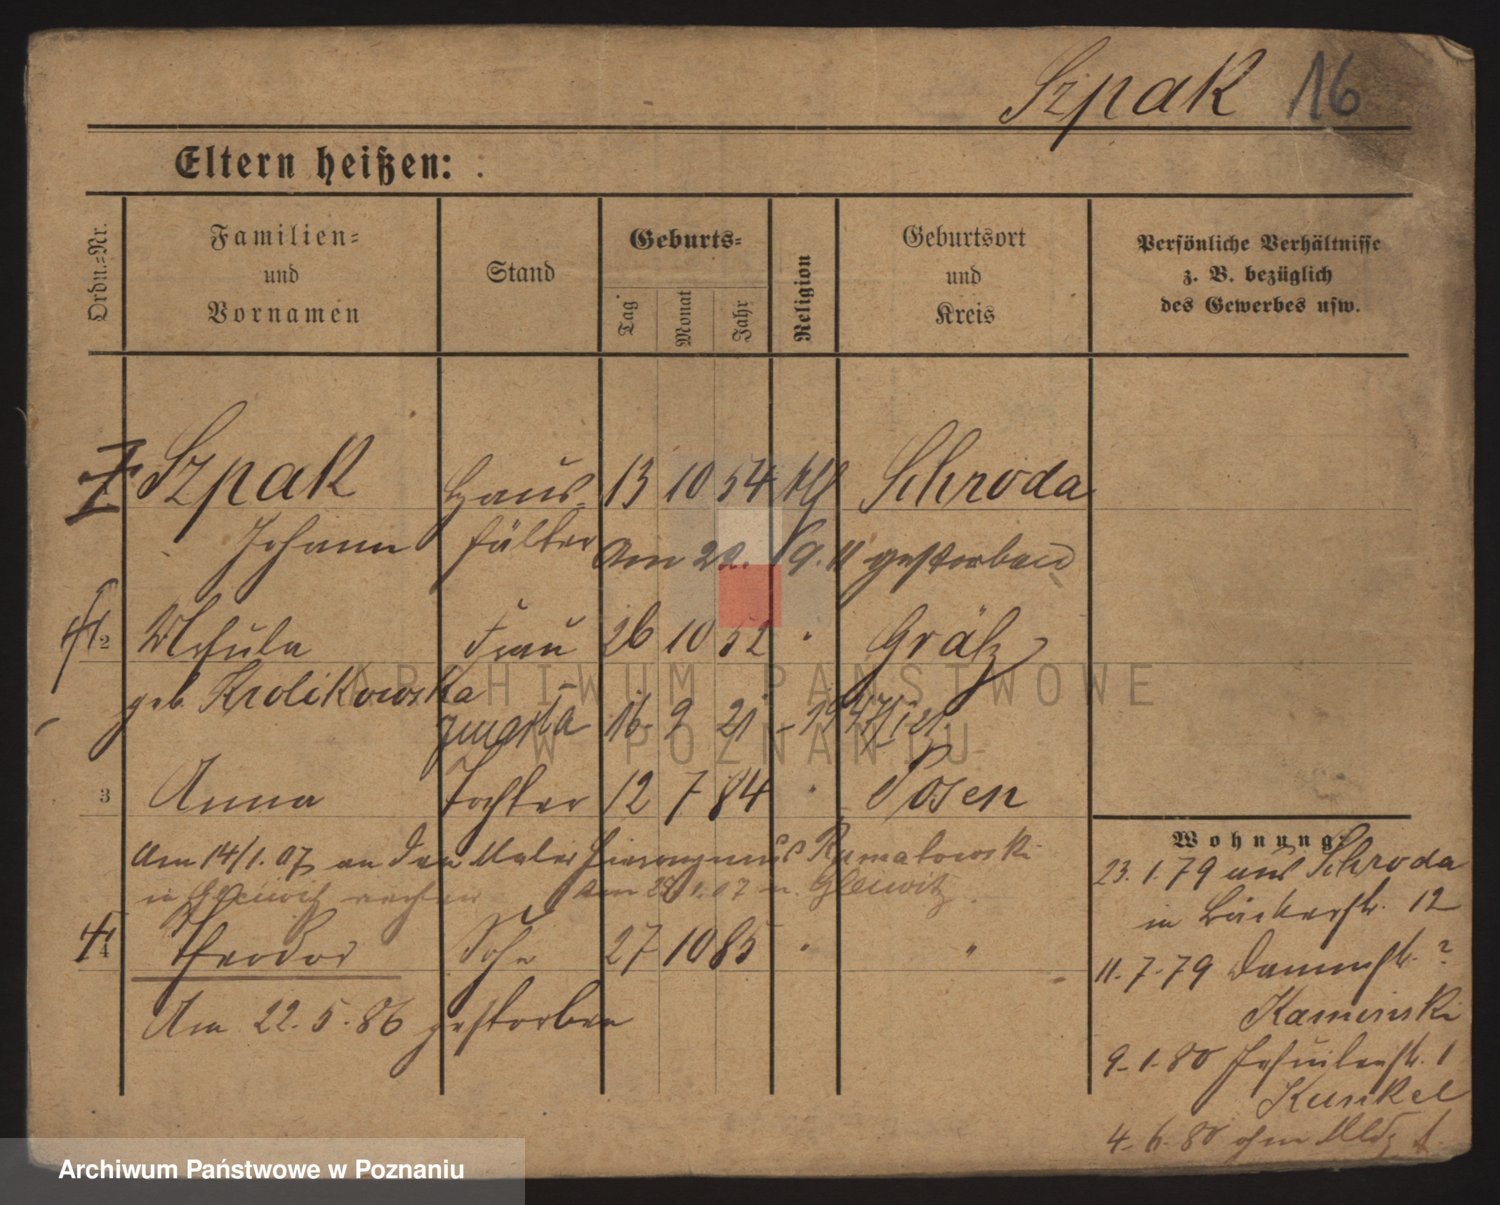 Szpak 16
Eltern heißen:
Ordn.-Nr.
Familien-
und
Vornamen
Stand
Geburts-
Tag
Monat
Jahr
Religion
Geburtsort
und
Kreis
Persönliche Verhältnisse
z. B. bezüglich
des Gewerbes usw.
Szpak Haus- 13 10 54 Schroda
Johann hälter Am 22. 9. 11 gestorben
2 Frau 26 10 52 " Grätz
geb. Krolikowska
zmarła 16 2 21
3 Anna Tochter 12 7 84 " Posen
Am 14/1. 07 an den Maler Hieronymus
in Gleiwitz Gleiwitz
4 Theodor Sohn 27 10 85 " "
Am 22. 5. 86 gestorben
Wohnung:
23. 1. 79 aus Schroda
in Bäckerstr. 12
11. 7. 79 Dammstr. ?
Kaminski
9. 1. 80 Jesuitenstr. 1
Kunkel
4. 6. 80 ohne
ARCHIWUM PAŃSTWOWE
W POZNANIU
Archiwum Państwowe w Poznaniu